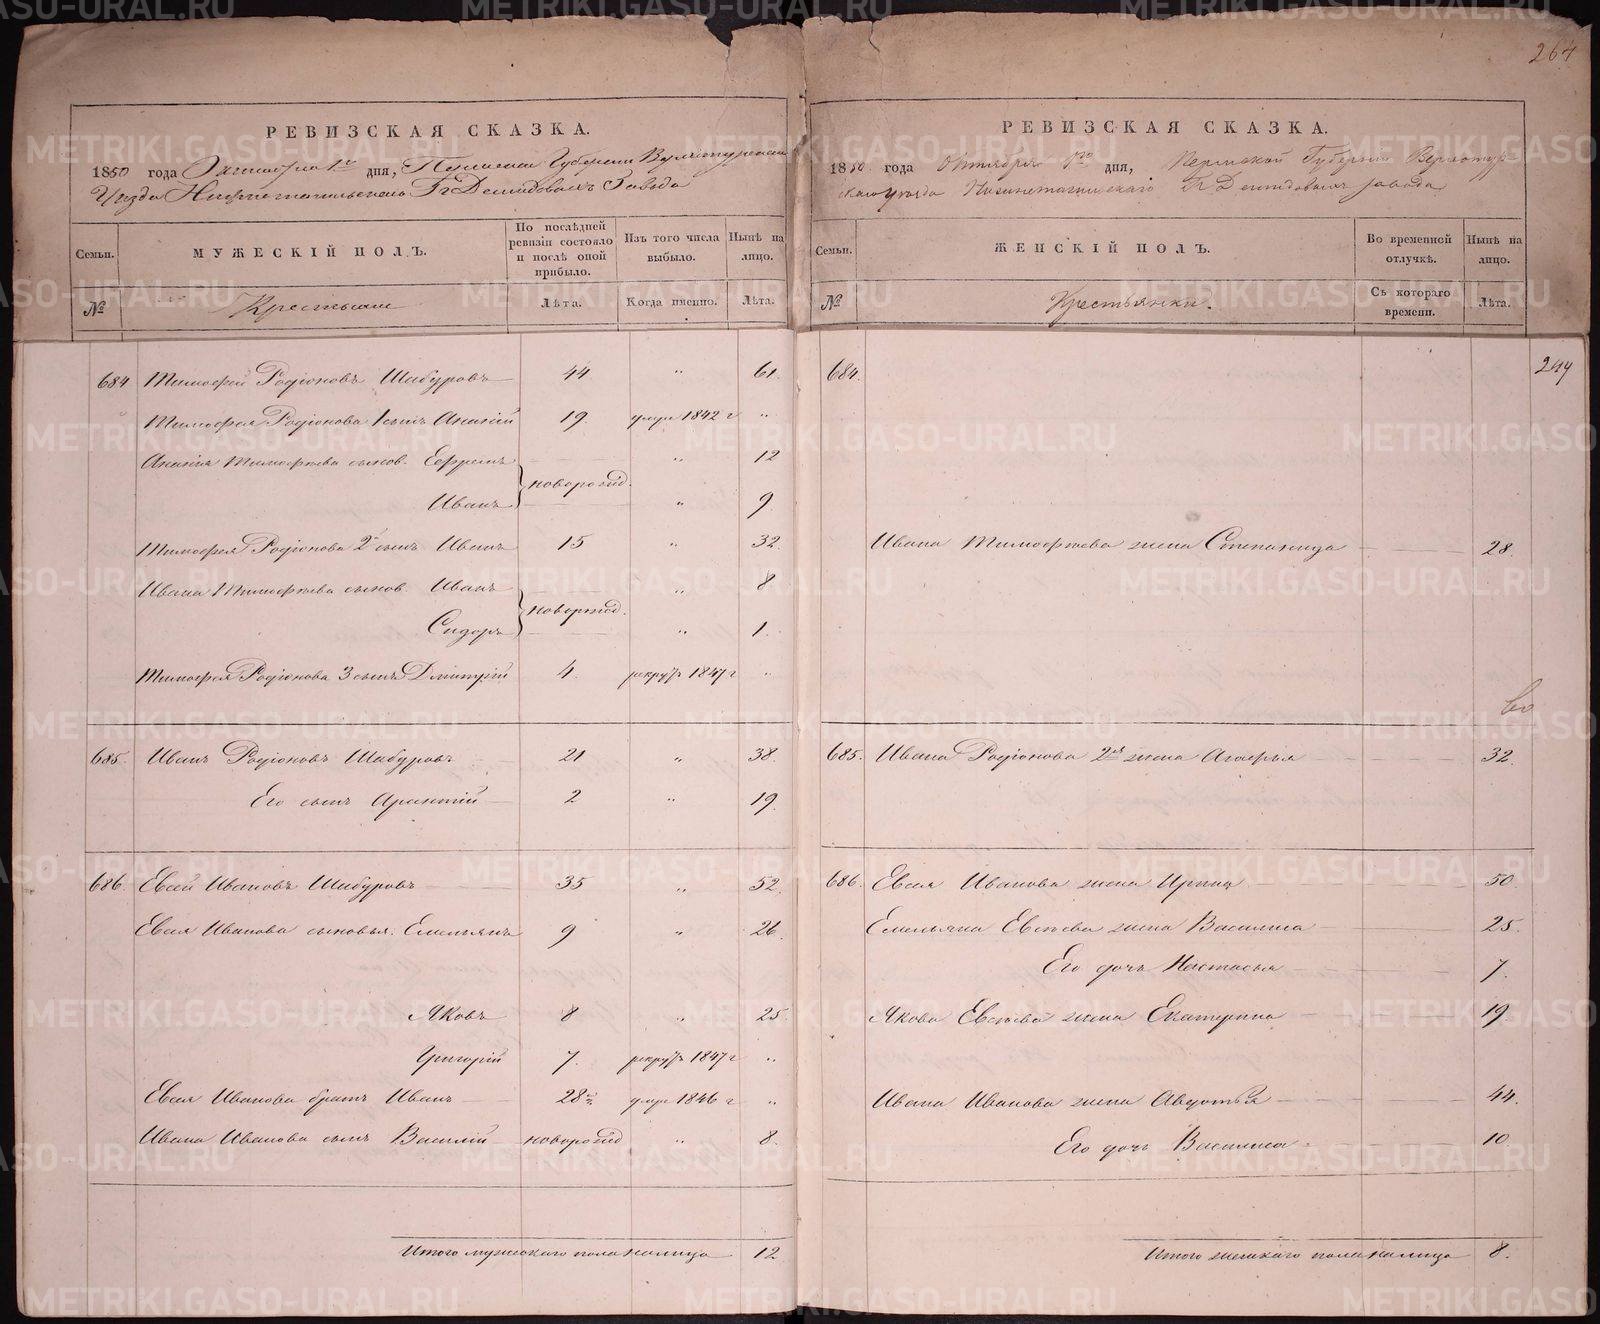 264
РЕВИЗСКАЯ СКАЗКА.
1850 года Октября 1го дня, Пермской Губернiи Верхотурскаго
Уѣзда Нижнетагильскаго Гг Демидовыхъ Завода
Семьи.
МУЖЕСКІЙ ПОЛЪ.
По послѣдней ревизіи состояло и послѣ оной прибыло.
Изъ того числа выбыло.
Нынѣ на лицо.
№
Крестьяне
Лѣта.
Когда именно.
Лѣта.
684 Тимофей Родіоновъ Шабуровъ 44 „ 61.
Тимофея Родіонова 1 сынъ Ананій 19 умре 1842 г „
Ананія Тимофѣева сынов. Ефремъ новорожд. „ 12
Иванъ „ 9
Тимофея Родіонова 2й сынъ Иванъ 15 „ 32
Ивана Тимофѣева сынов. Иванъ новорожд. „ 8
Сидоръ „ 1.
Тимофея Родіонова 3 сынъ Дмитрій 4. рекрут 1847 г „
685. Иванъ Родіоновъ Шабуровъ 21 „ 38.
Его сынъ Арентій 2 „ 19.
686. Евсей Ивановъ Шабуровъ 35 „ 52.
Евсея Иванова сыновья. Емельянъ 9 „ 26.
Яковъ 8 „ 25.
Григорій 7. рекрут 1847 г „
Евсея Иванова братъ Иванъ 28 умре 1846 г „
Ивана Иванова сынъ Василій новорожд „ 8.
Итого мужскаго пола налицо 12
РЕВИЗСКАЯ СКАЗКА.
1850 года Октября 1го дня, Пермской Губерніи Верхотур-
скаго уѣзда Нижнетагильскаго Гг Демидовыхъ завода
Семьи.
ЖЕНСКІЙ ПОЛЪ.
Во временной отлучкѣ.
Нынѣ на лицо.
№
Крестьянки.
Съ котораго времени.
Лѣта.
684.
Ивана Тимофѣева жена Степанида 28.
685. Ивана Родіонова 2я жена Агафья 32.
686. Евсея Иванова жена Ирина 50.
Емельяна Евсѣева жена Василиса 25.
Его дочь Настасья 7.
Якова Евсѣева жена Екатерина 19
Ивана Иванова жена Авдотья 44.
Его дочь Василиса 10.
Итого женскаго пола налицо 8.
METRIKI.GASO-URAL.RU